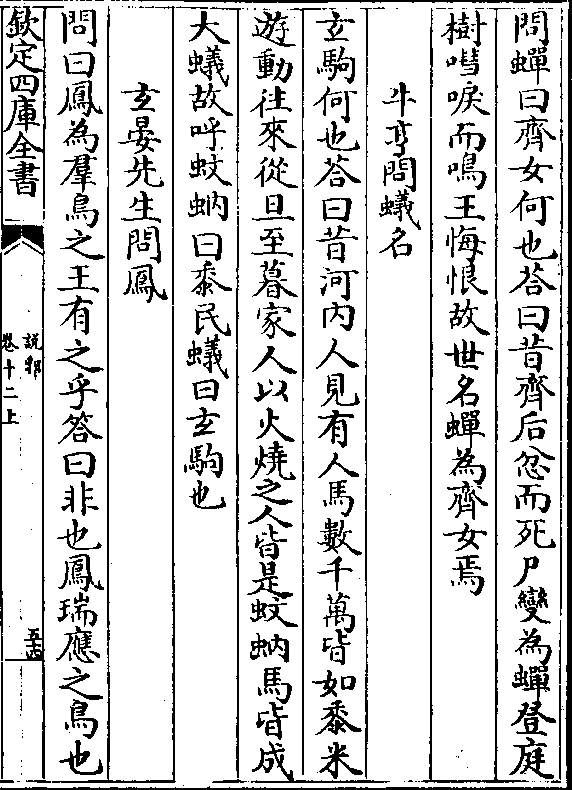 問蟬曰齊女何也荅曰昔齊后忿而死尸變為蟬登庭
樹嘒唳而鳴王悔恨故世名蟬為齊女焉
牛亨問蟻名
玄駒何也荅曰昔河内人見有人馬數千萬皆如黍米
遊動往來從旦至暮家人以火燒之人皆是蚊蚋馬皆成
大蟻故呼蚊蚋曰黍民蟻曰玄駒也
玄晏先生問鳳
問曰鳳為羣鳥之王有之乎答曰非也鳳瑞應之鳥也
欽定四庫全書
說郛
卷十二上
五十四